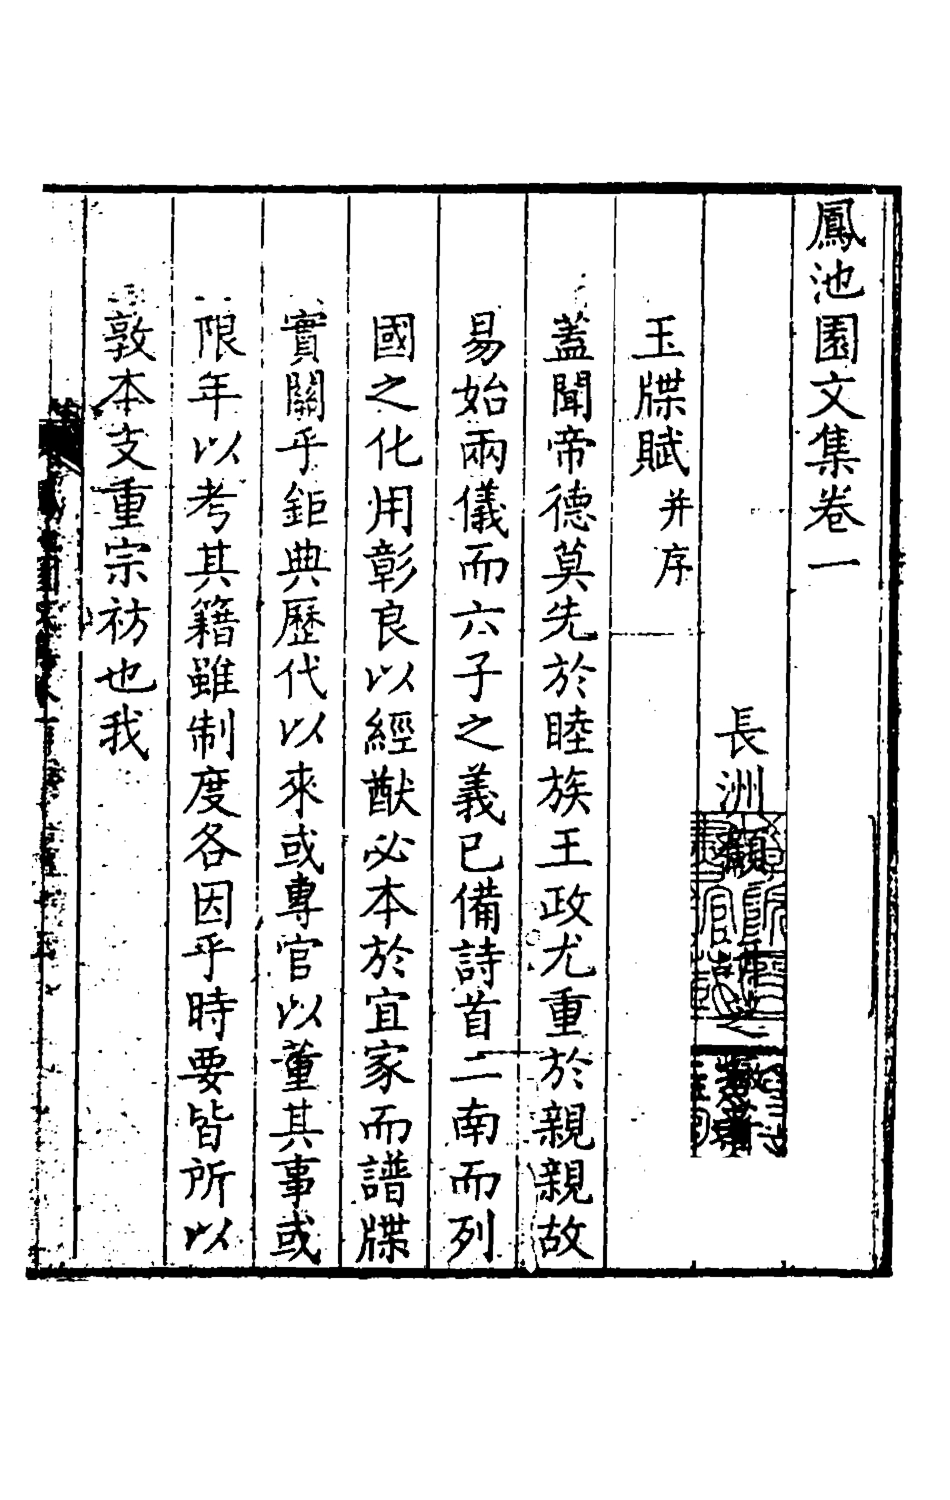 鳳池園文集卷一
長洲顧汧
玉牒賦并序
蓋聞帝德莫先於睦族王政尤重於親親故
易始兩儀而六子之義已備詩首二南而列
國之化用彰良以經猷必本於宜家而譜牒
實關乎鉅典歷代以來或專官以董其事或
限年以考其籍雖制度各因乎時要皆所以
敦本支重宗祊也我